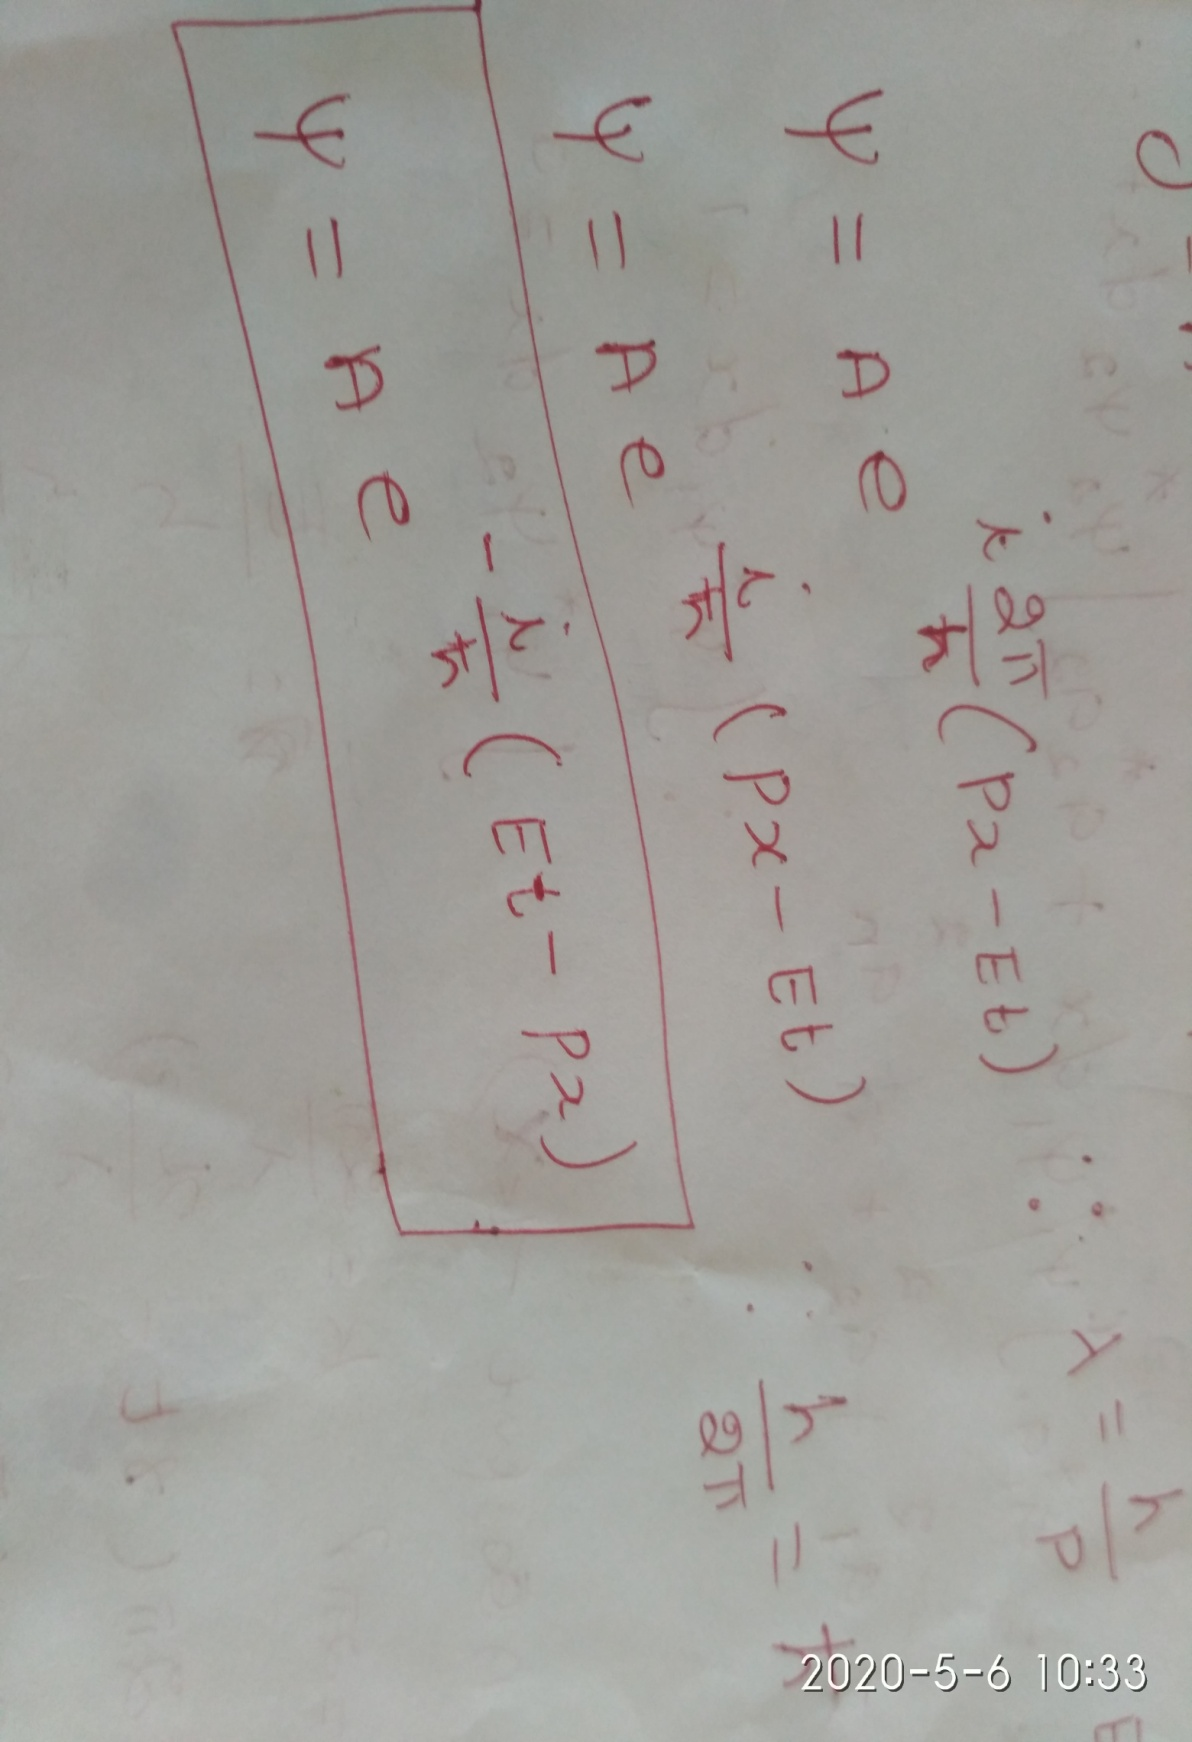 ψ = A e^{i 2π/ħ (Px - Et)} ∵ λ = h/P
ψ = A e^{i/ħ (Px - Et)} ∵ h/2π = ħ
ψ = A e^{-i/ħ (Et - Px)}
2020-5-6 10:33